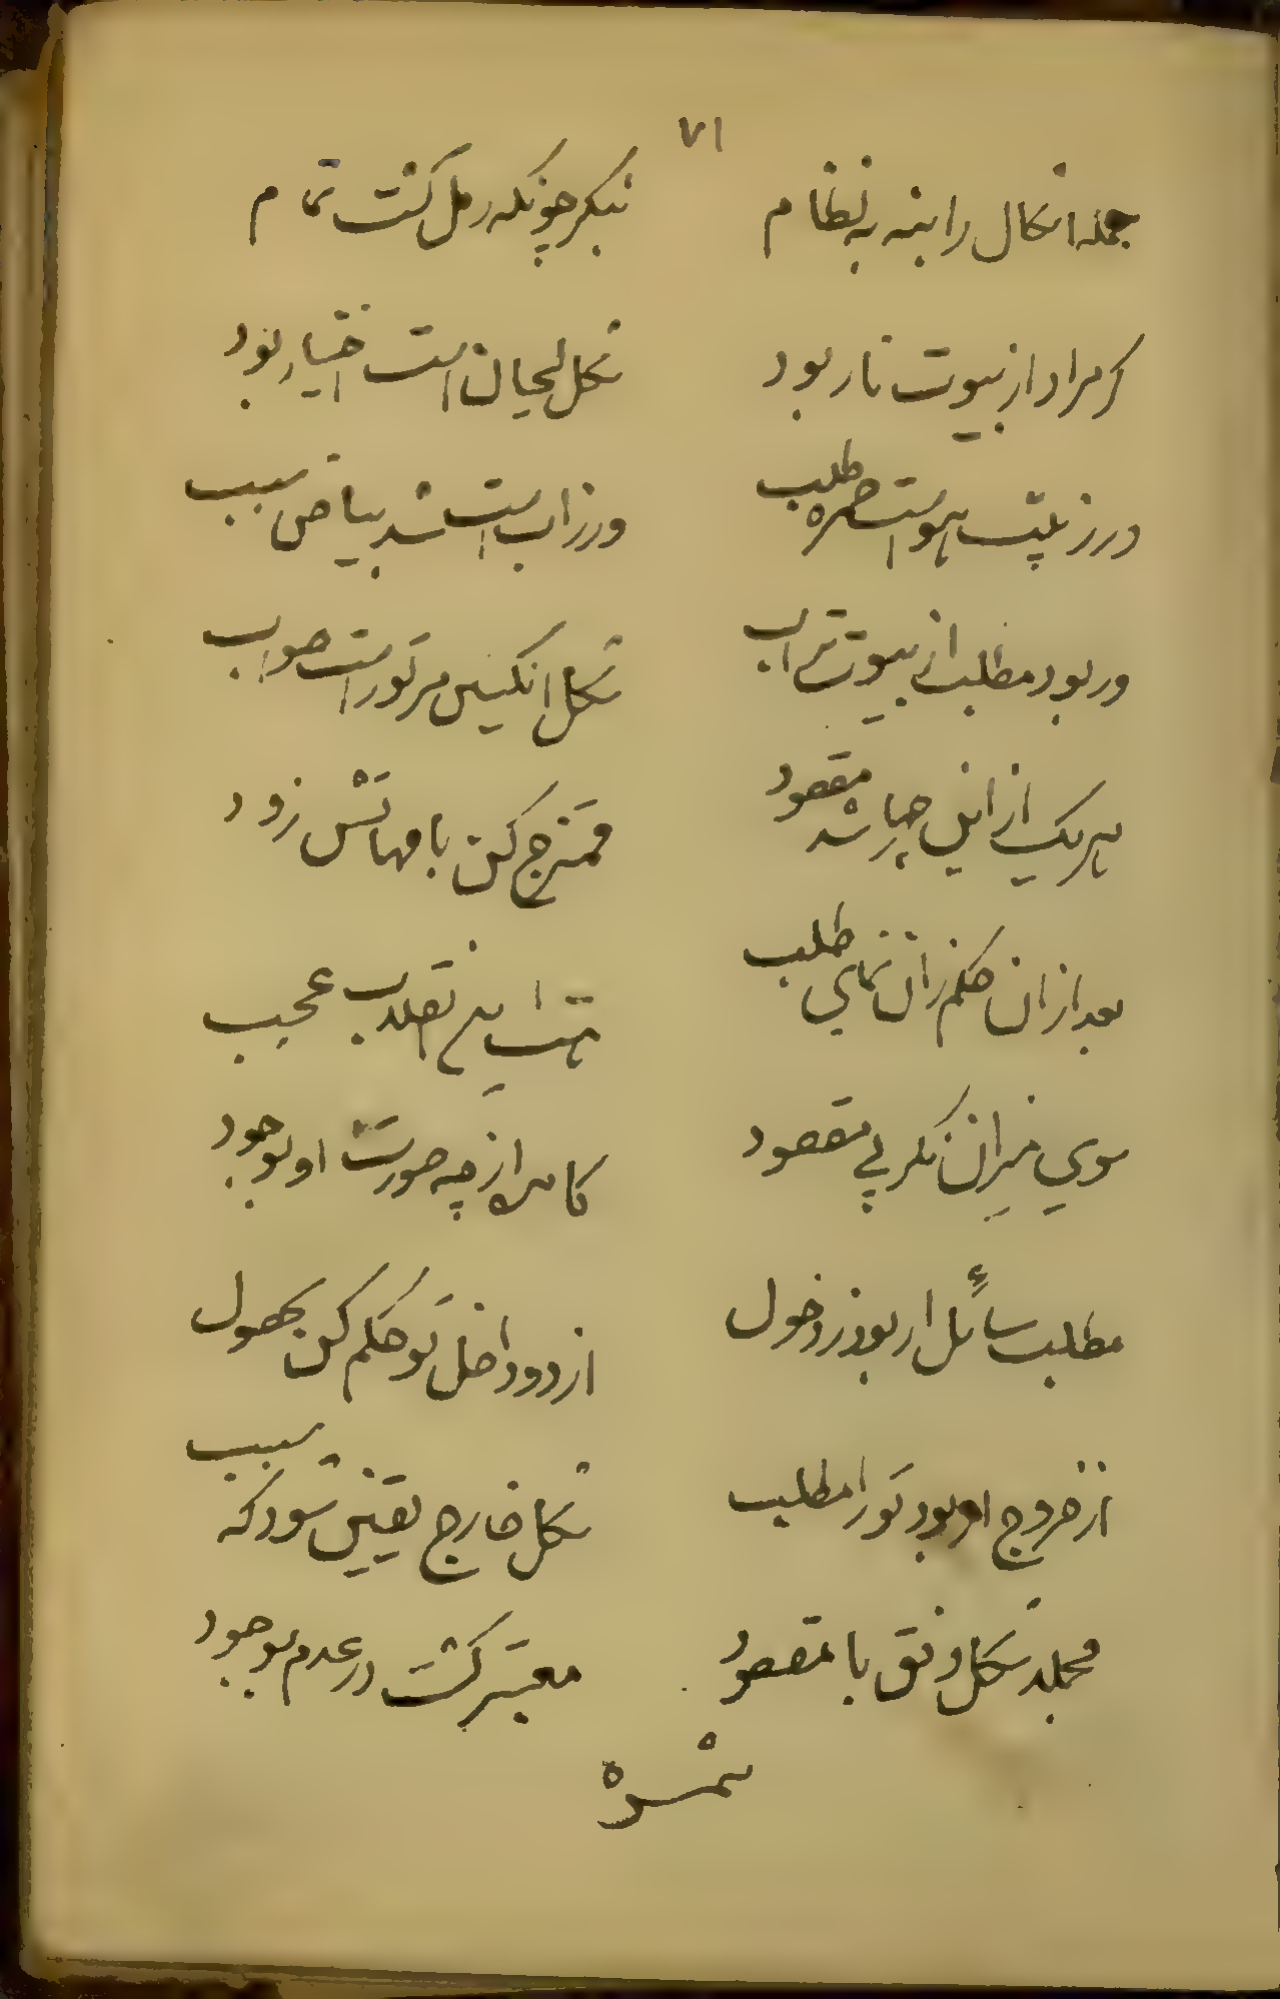 ۷۱
جمله اشکال را بنه به نظام بنکر چونکه رمل کشت تمام
کر مراد از بیوت نار بود شکل لحیان است اختیار بود
ور ز بیت هواست حمره طلب ور ز اب است شد بیاض سبب
ور بود مطلب از بیوت تراب شکل انکیس مر تو راست صواب
هر یک از این چهار شد مقصود ممتزج کن با مهاتش زود
بعد از ان حکم زان نمای طلب هست این انقلاب عجیب
سوی میزان نکر پی مقصود کامده از چه صورت او بوجود
مطلب سائل ار بود ز دخول از دو داخل تو حکم کن بحصول
از خروج ار بود تو را مطلب شکل خارج یقین شود که سبب
مجملا شکل وفق با مقصود معتبر کشت در عدم بوجود